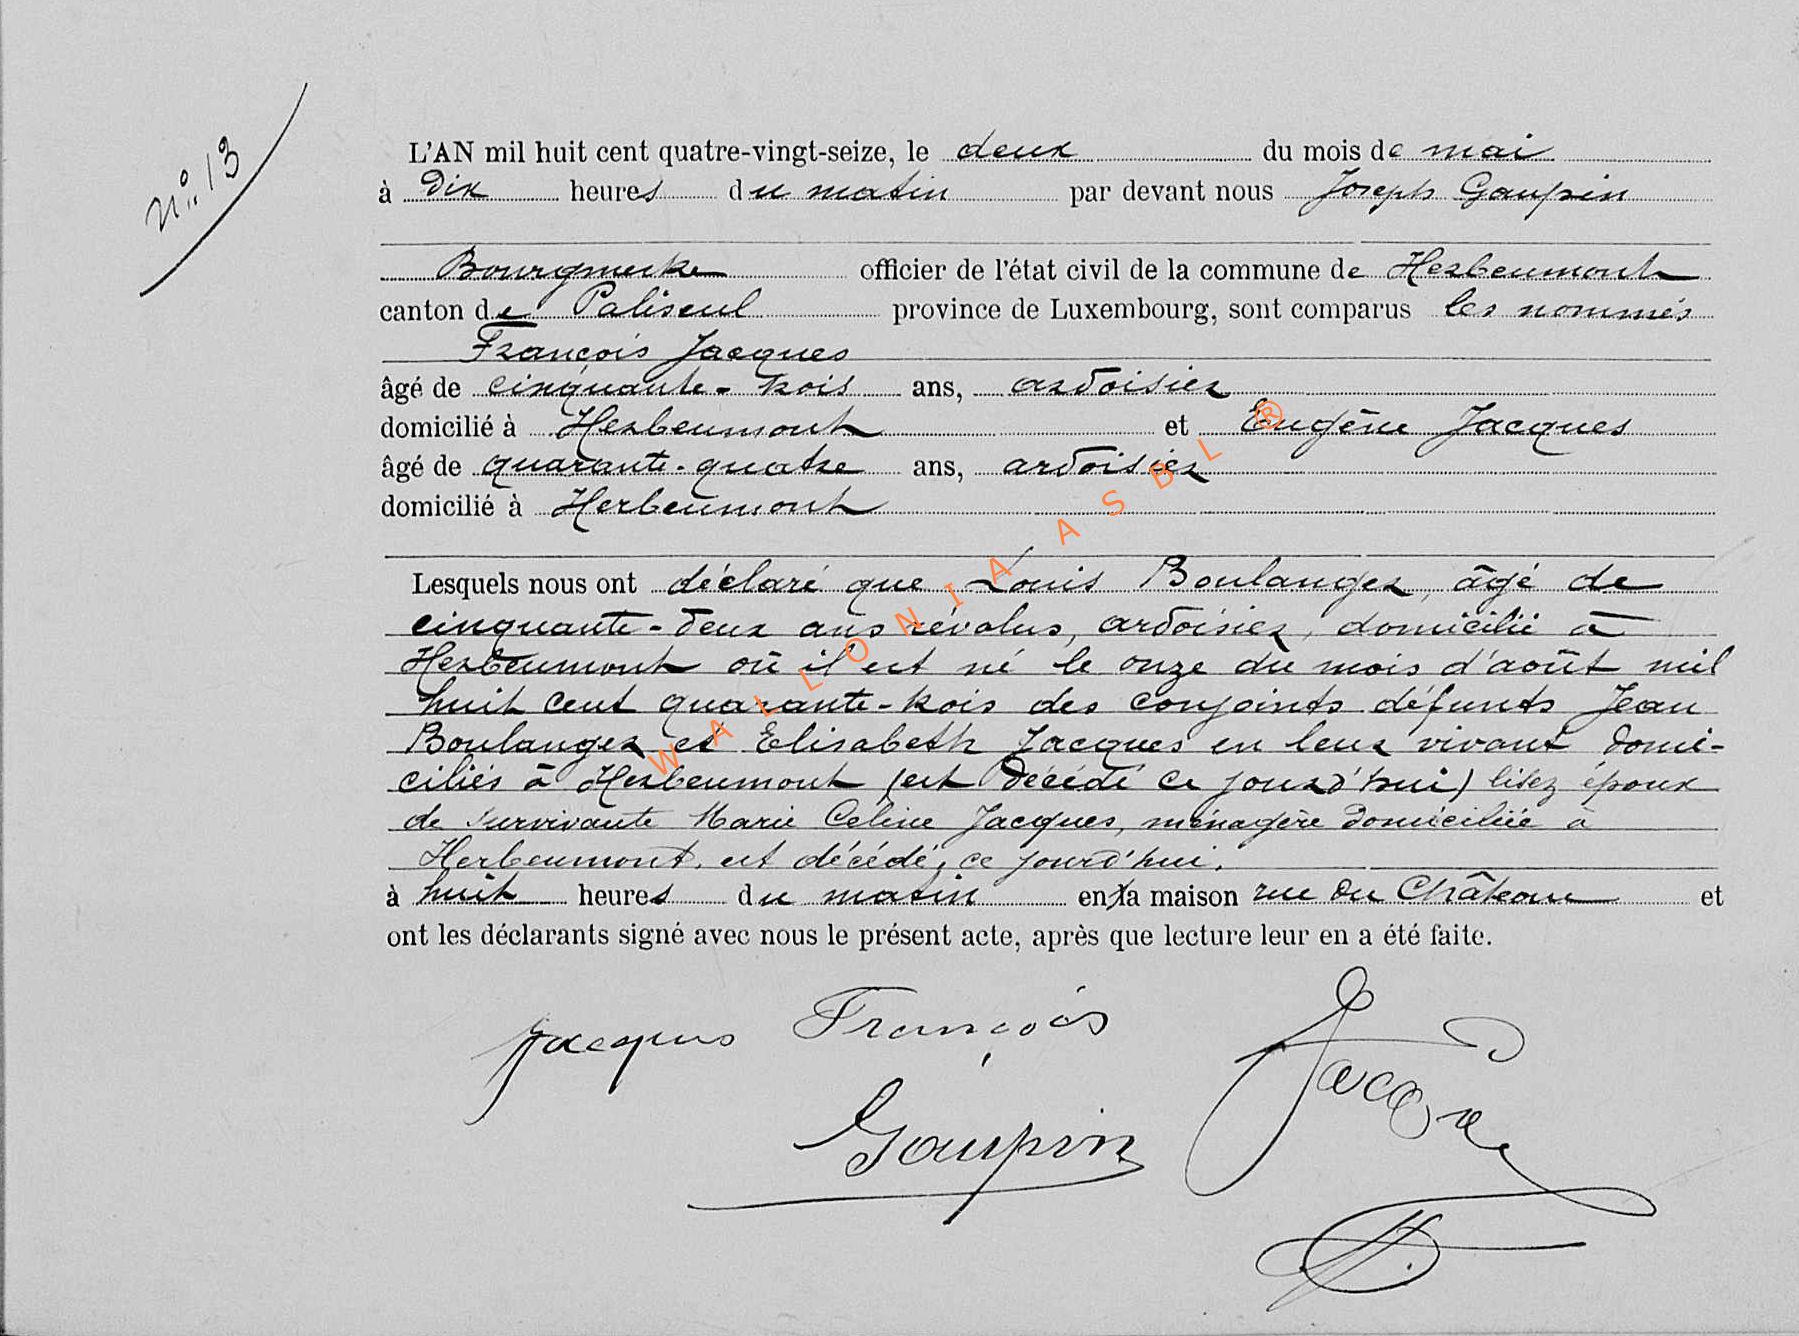 n° 13
L'AN mil huit cent quatre-vingt-seize, le deux du mois de mai
à dix heures du matin par devant nous Joseph Gaupin
Bourgmestre officier de l'état civil de la commune de Herbeumont
canton de Paliseul province de Luxembourg, sont comparus les nommés
François Jacques
âgé de cinquante-trois ans, ardoisier
domicilié à Herbeumont et Eugène Jacques
âgé de quarante-quatre ans, ardoisier
domicilié à Herbeumont
Lesquels nous ont déclaré que Louis Boulanger, âgé de
cinquante-deux ans révolus, ardoisier, domicilié à
Herbeumont où il est né le onze du mois d'août mil
huit cent quarante-trois des conjoints défunts Jean
Boulanger et Elisabeth Jacques en leur vivant domi-
ciliés à Herbeumont (est décédé ce jourd'hui) lisez époux
de survivante Marie Celine Jacques, ménagère domiciliée à
Herbeumont, est décédé, ce jourd'hui,
à huit heures du matin en la maison rue du Château et
ont les déclarants signé avec nous le présent acte, après que lecture leur en a été faite.
Jacques François
Jacques
Gaupin
WALLONIA ASBL ®